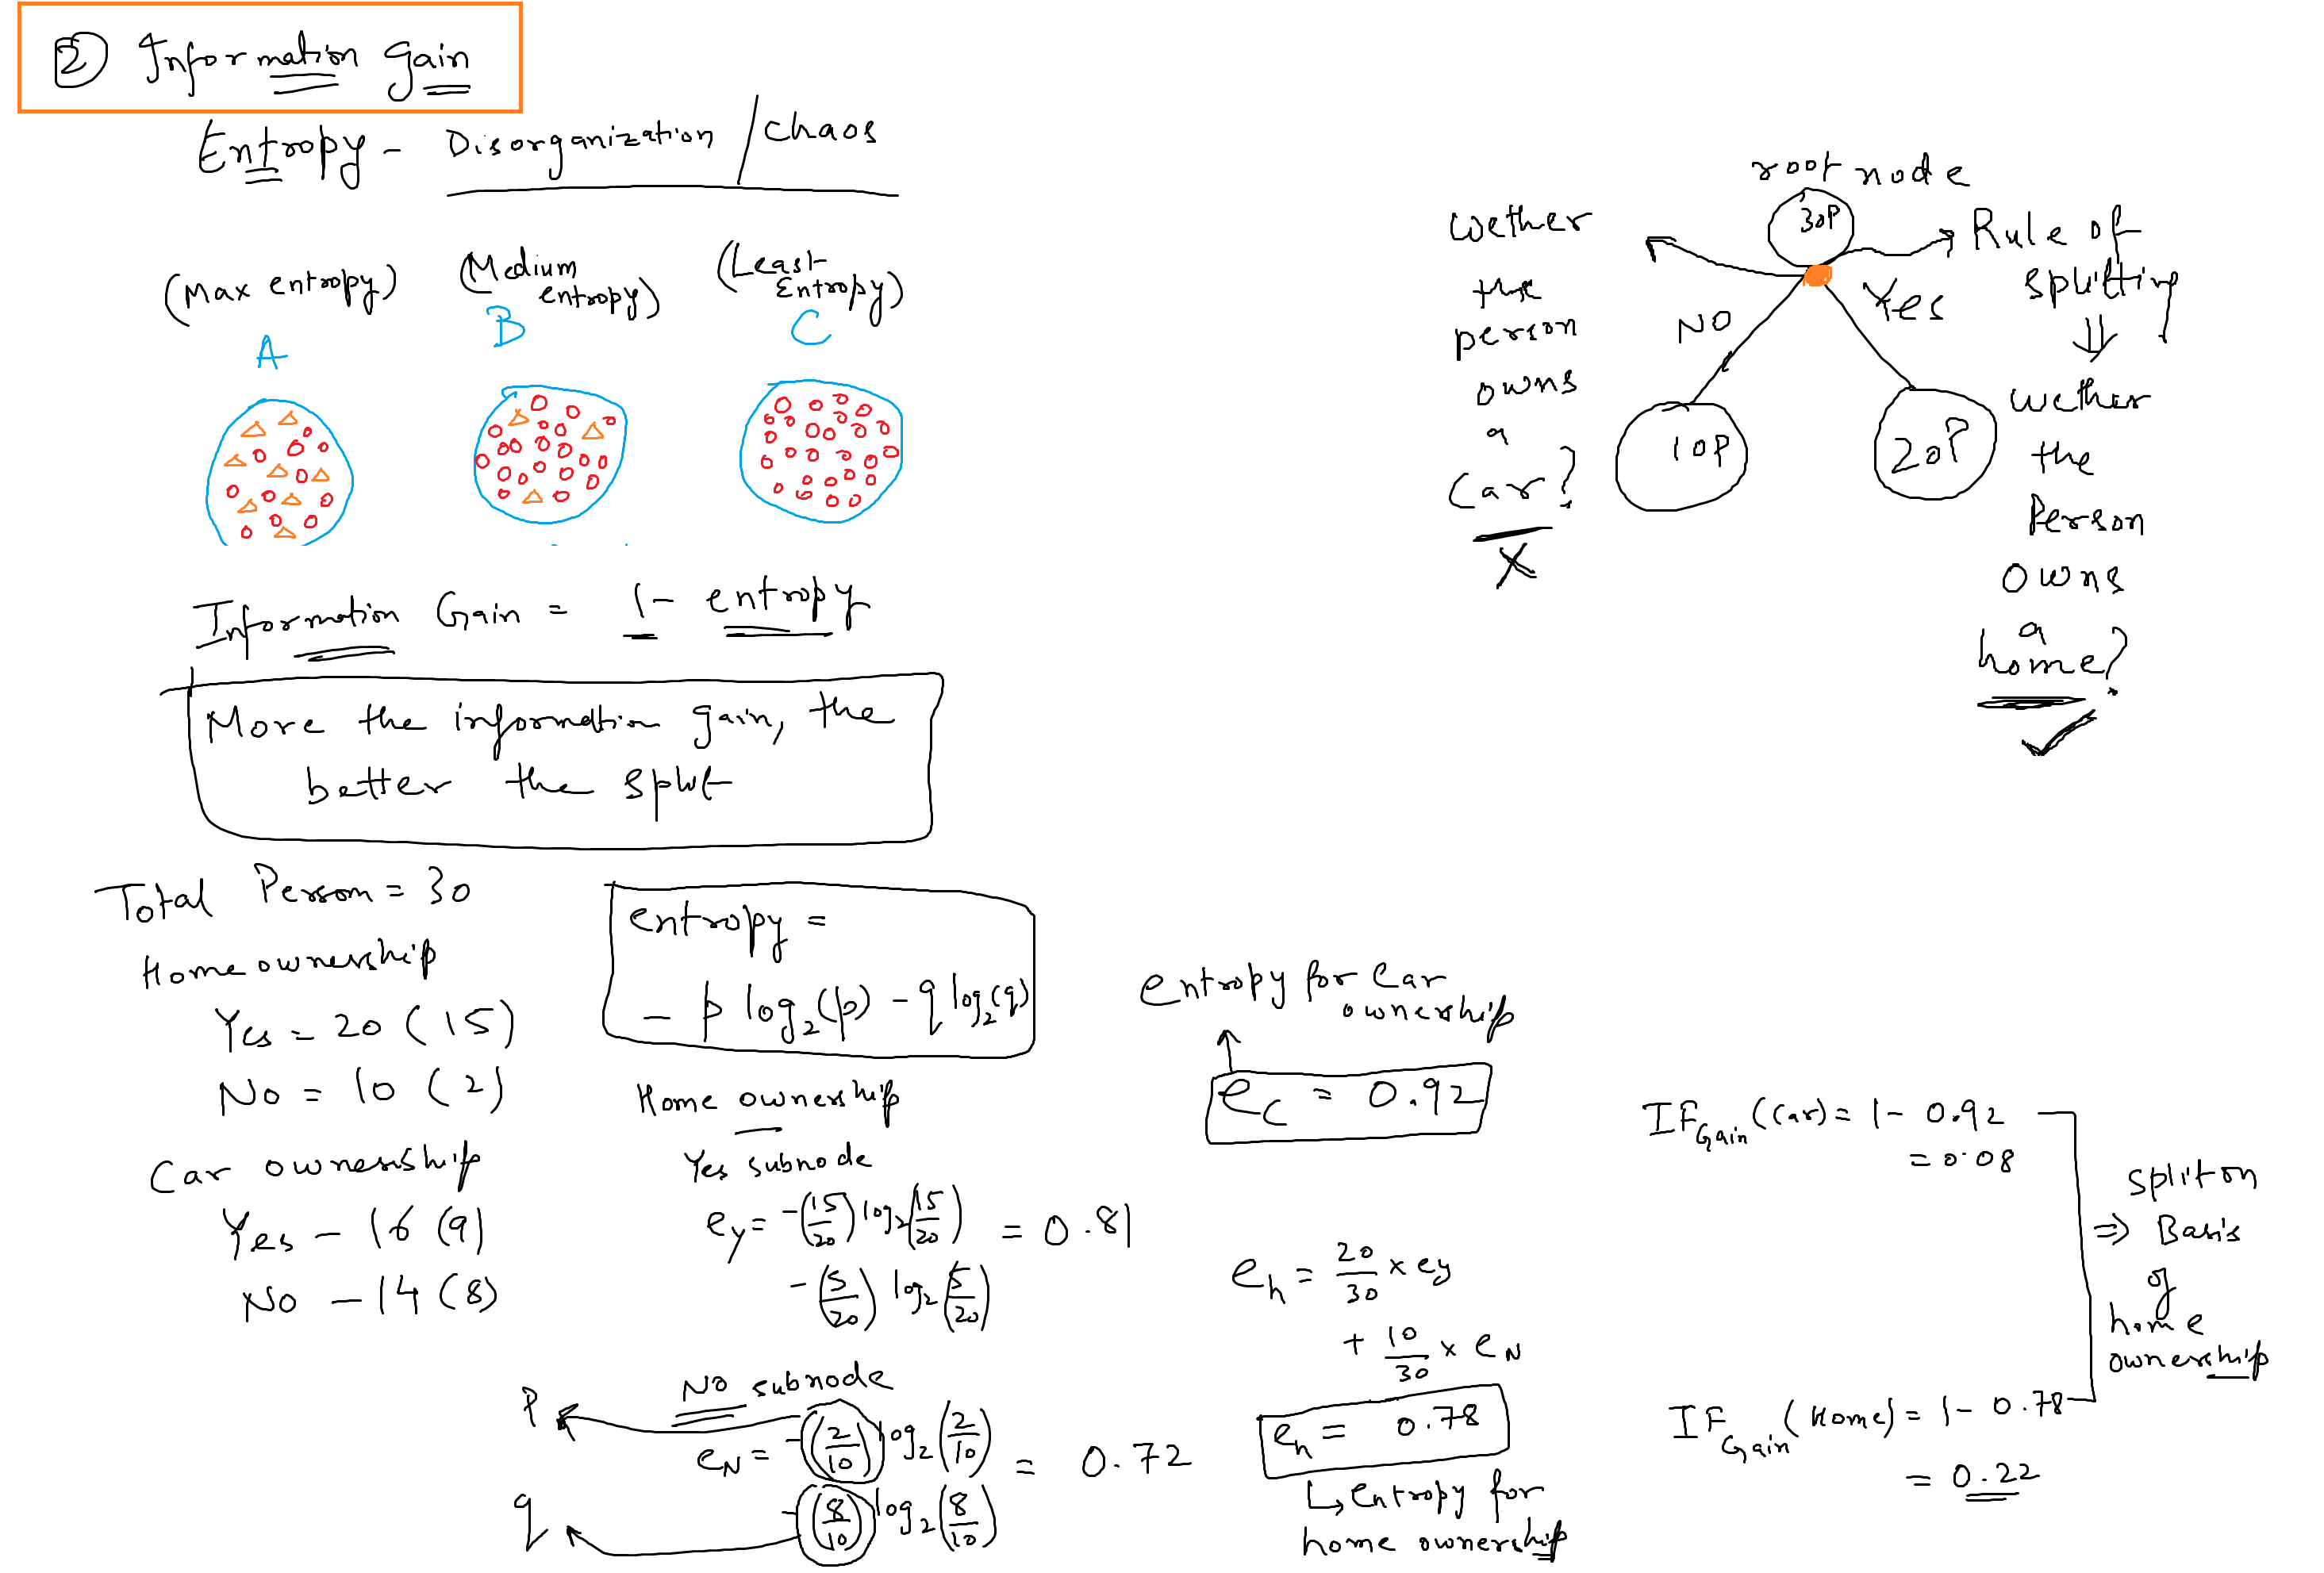 ② Information Gain
Entropy - Disorganization / chaos
(Max entropy)
A
(Medium
entropy)
B
(Least
Entropy)
C
Information Gain = 1 - entropy
More the information gain, the
better the split
root node
30P
NO
Yes
10P
20P
wether
the
person
owns
a
Car?
X
Rule of
splitting
⇓
wether
the
Person
owns
a
home?
✓
Total Person = 30
Home ownership
Yes = 20 (15)
No = 10 (2)
Car ownership
Yes - 16 (9)
No - 14 (8)
entropy =
- p log₂(p) - q log₂(q)
Home ownership
Yes subnode
e_y = -(15/20) log₂(15/20)
-(5/20) log₂(5/20)
= 0.81
NO subnode
P
e_N = -(2/10) log₂(2/10)
q
-(8/10) log₂(8/10)
= 0.72
entropy for Car
ownership
e_C = 0.92
e_h = 20/30 × e_y
+ 10/30 × e_N
e_h = 0.78
↳ entropy for
home ownership
IF_Gain (Car) = 1 - 0.92
= 0.08
IF_Gain (Home) = 1 - 0.78
= 0.22
split on
⇒ Basis
of
home
ownership